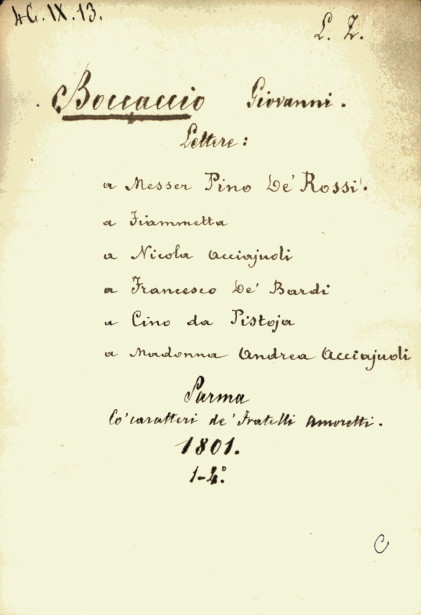 4C.IX.13.
L. Z.
Boccaccio Giovanni.
Lettere:
a Messer Pino De' Rossi.
a Fiammetta
a Nicola Acciajuoli
a Francesco De' Bardi
a Cino da Pistoja
a Madonna Andrea Acciajuoli
Parma
Co' caratteri de' Fratelli Amoretti.
1801.
1-4°.
C